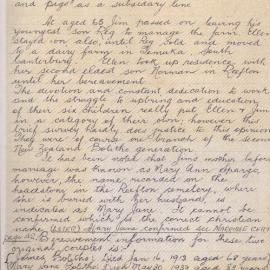 and pigs" as a subsidary line
At aged 65 Jim passed on leaving his
youngest son Reg to manage the farm. Ellen
stayed on also, until Reg sold and moved
to a dairy farm in Temuka, South
Canterbury. Ellen took up residence with
her second eldest son Norman in Reefton
until her bereavement.
The devotion and constant dedication to work
and the struggle to upbring and education
of their six children really put Ellen & Jim
in a category of their own, however this
brief survey hardly does justice to this opinion
They were of course one branch of the second
New Zealand Bolitho generation.
It has been noted that Jims mother before
marriage was known as Mary Ann Spargo,
however, the name recorded on the
headstone in the Reefton cemetery, where
she is buried with her husband, is
indicated as Mary Jane. It cannot be
confirmed which is the correct christian
name. Mary Jane confirmed see
Engravement information for these two
original couples is:-
James Bolitho: Died Jan 16, 1913 aged 68 years
Mary Jane Bolitho: Died May 20